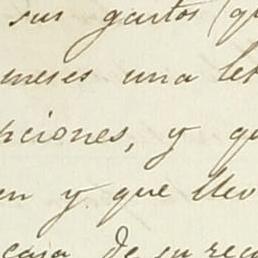 sus gastos (q
meses una let
pciones, y qu
en y que llev
casa de su rec